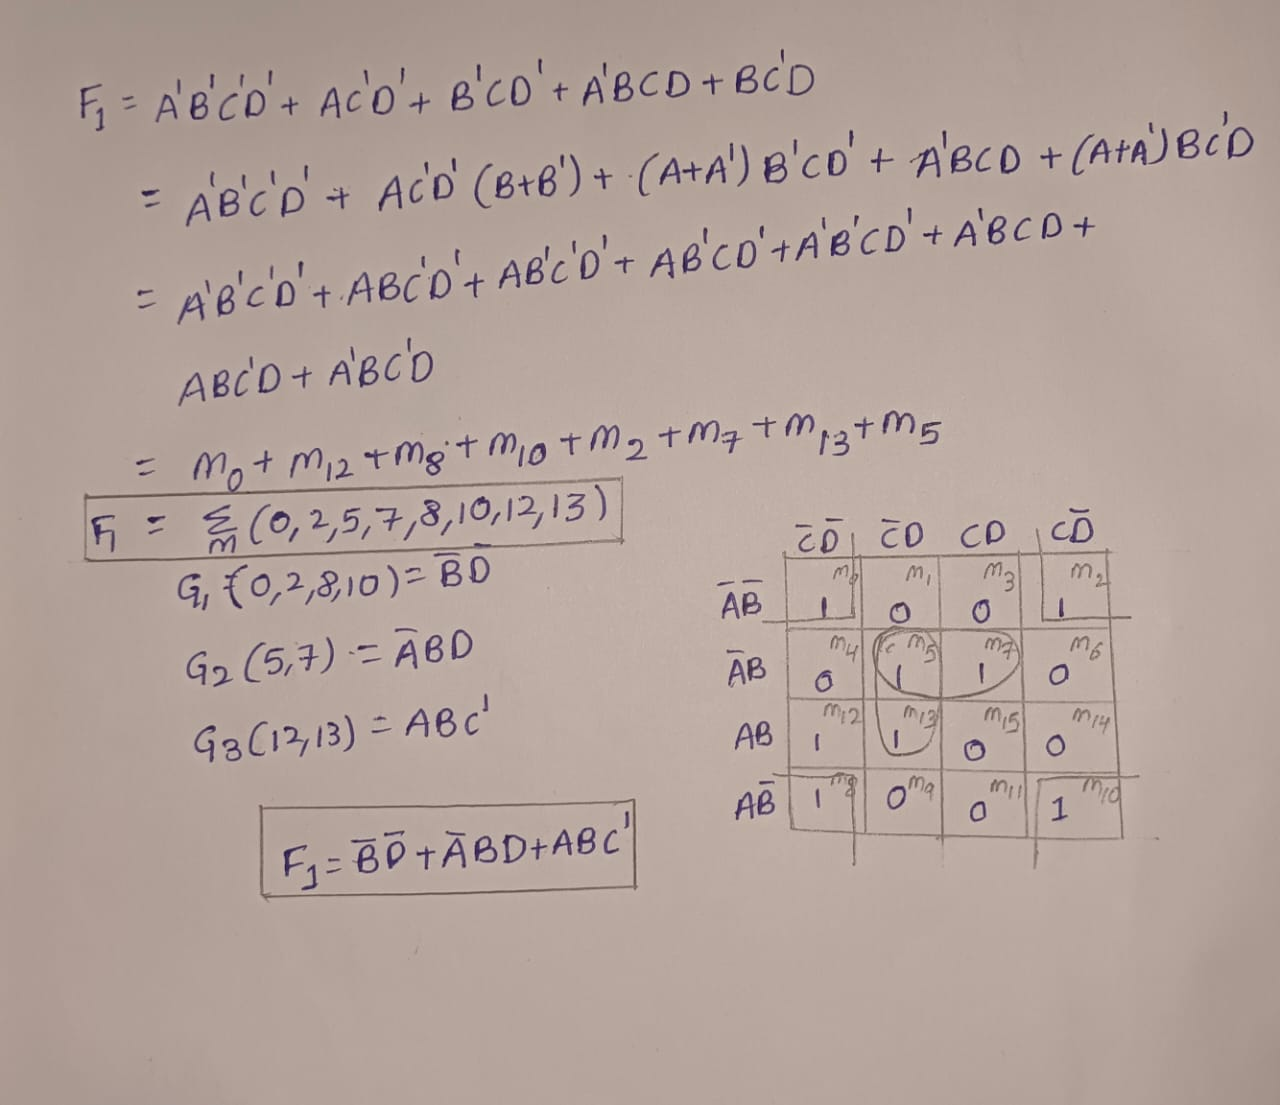 F₁ = A'B'C'D' + AC'D' + B'CD' + A'BCD + BC'D
= A'B'C'D' + AC'D' (B+B') + (A+A') B'CD' + A'BCD + (A+A')BC'D
= A'B'C'D' + ABC'D' + AB'C'D' + AB'CD' + A'B'CD' + A'BCD +
ABC'D + A'BC'D
= m₀ + m₁₂ + m₈ + m₁₀ + m₂ + m₇ + m₁₃ + m₅
F₁ = Σm (0, 2, 5, 7, 8, 10, 12, 13)
G₁ (0, 2, 8, 10) = B̅D̅
G₂ (5, 7) = A̅BD
G₃ (12, 13) = ABC'
F₁ = B̅D̅ + A̅BD + ABC'
C̅D̅ C̅D CD CD̅
A̅B̅ m₀ 1 m₁ 0 m₃ 0 m₂ 1
A̅B m₄ 0 m₅ 1 m₇ 1 m₆ 0
AB m₁₂ 1 m₁₃ 1 m₁₅ 0 m₁₄ 0
AB̅ m₈ 1 m₉ 0 m₁₁ 0 m₁₀ 1